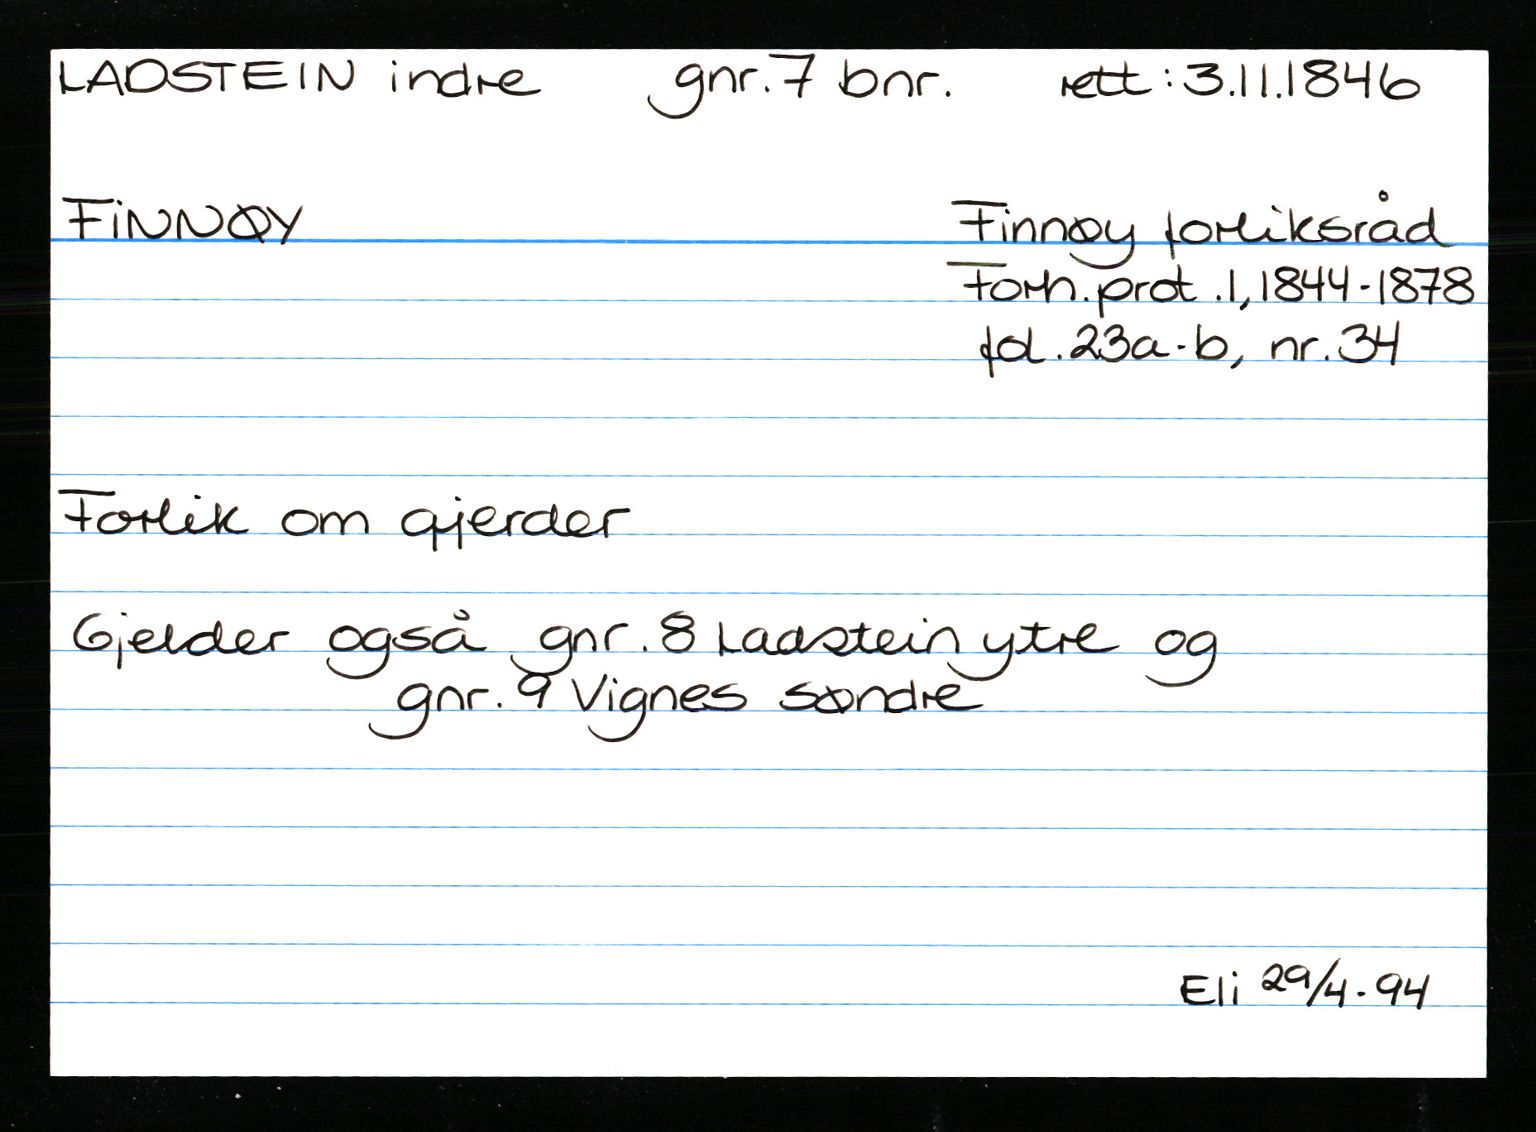 LADSTEIN indre gnr. 7 bnr. rett: 3.11.1846
FINNØY
Finnøy forliksråd
Forh. prot. 1, 1844-1878
fol. 23a-b, nr. 34
Forlik om gjerder
Gjelder også gnr. 8 Ladstein ytre og
gnr. 9 Vignes søndre
Eli 29/4-94